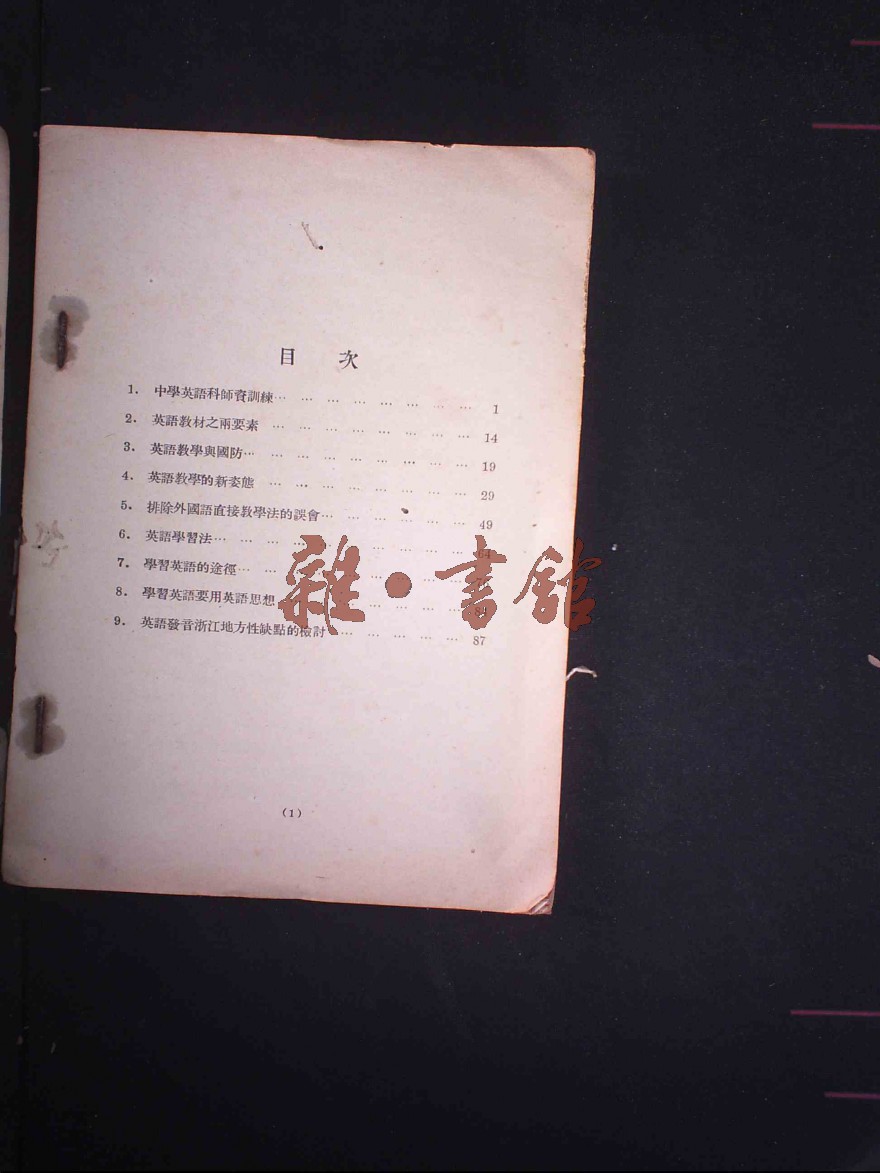 目 次
1. 中學英語科師資訓練… … … … … … … … 1
2. 英語教材之兩要素 … … … … … … … … 14
3. 英語教學與國防… … … … … … … … … 19
4. 英語教學的新姿態 … … … … … … … … 29
5. 排除外國語直接教學法的誤會… … … … … … 49
6. 英語學習法… … … … … … … … … … 64
7. 學習英語的途徑… … … … … … … …
8. 學習英語要用英語思想 … … … … … … …
9. 英語發音浙江地方性缺點的檢討 … … … … … 87
雜·書館
(1)